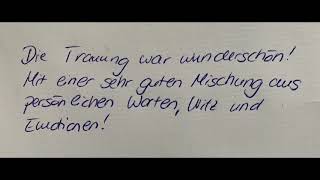 Die Trauung war wunderschön!
Mit einer sehr guten Mischung aus
persönlichen Worten, Witz und
Emotionen!